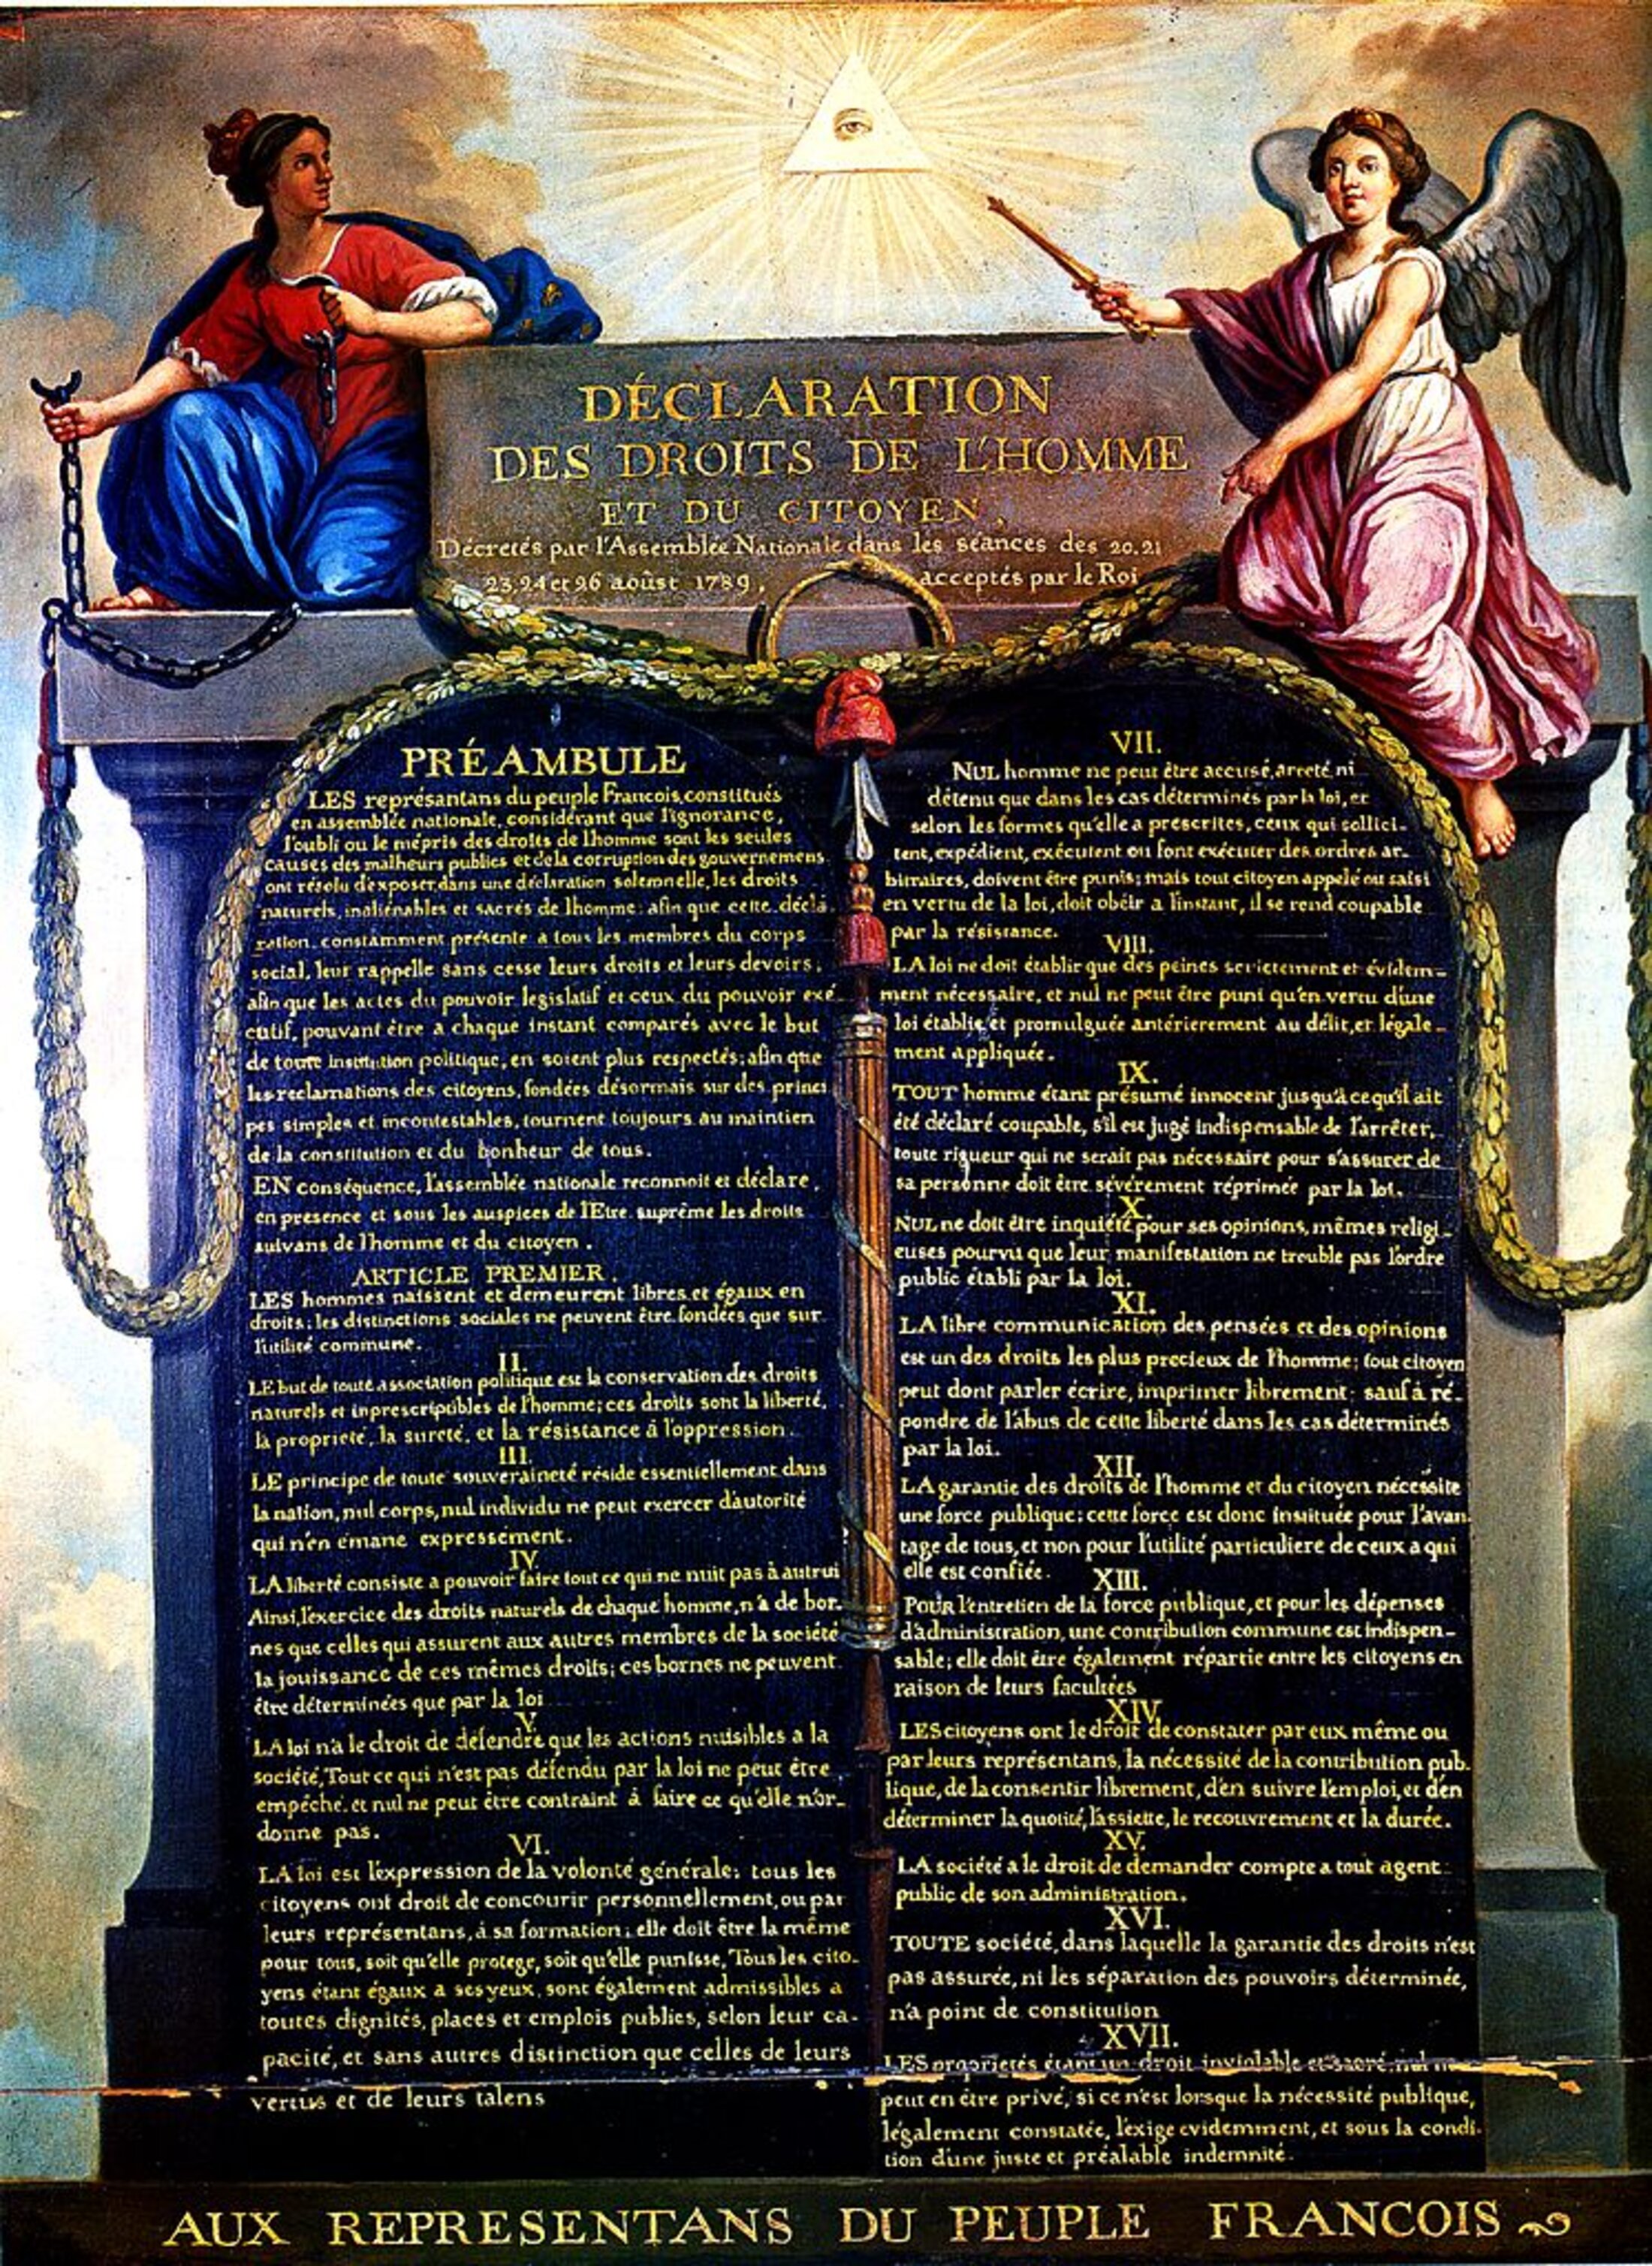 DÉCLARATION
DES DROITS DE L'HOMME
ET DU CITOYEN,
Décretés par l'Assemblée Nationale dans les séances des 20.21
23.24 et 26 aoûst 1789, acceptés par le Roi
PRÉAMBULE
LES représantans du peuple Francois, constitués
en assemblée nationale, considérant que l'ignorance,
l'oubli ou le mépris des droits de l'homme sont les seules
causes des malheurs publics et de la corruption des gouvernemens
ont résolu d'exposer, dans une déclaration solemnelle, les droits
naturels, inaliénables et sacrés de l'homme: afin que cette décla
ration, constamment présente a tous les membres du corps
social, leur rappelle sans cesse leurs droits et leurs devoirs;
afin que les actes du pouvoir legislatif et ceux du pouvoir exé
cutif, pouvant être a chaque instant comparés avec le but
de toute institution politique, en soient plus respectés; afin que
les reclamations des citoyens, fondées désormais sur des princi
pes simples et incontestables, tournent toujours au maintien
de la constitution et du bonheur de tous.
EN conséquence, l'assemblée nationale reconnoit et déclare,
en presence et sous les auspices de l'Etre suprême les droits
suivans de l'homme et du citoyen.
ARTICLE PREMIER.
LES hommes naissent et demeurent libres et égaux en
droits; les distinctions sociales ne peuvent être fondées que sur
l'utilité commune.
II.
LE but de toute association politique est la conservation des droits
naturels et inprescriptibles de l'homme; ces droits sont la liberté,
la propriété, la sureté, et la résistance à l'oppression.
III.
LE principe de toute souveraineté réside essentiellement dans
la nation, nul corps, nul individu ne peut exercer d'autorité
qui n'en émane expressément.
IV.
LA liberté consiste a pouvoir faire tout ce qui ne nuit pas à autrui
Ainsi, l'exercice des droits naturels de chaque homme, n'a de bor-
nes que celles qui assurent aux autres membres de la société
la jouissance de ces mêmes droits; ces bornes ne peuvent
être déterminées que par la loi
V.
LA loi n'a le droit de défendre que les actions nuisibles a la
société, Tout ce qui n'est pas défendu par la loi ne peut être
empéché, et nul ne peut être contraint à faire ce qu'elle n'or-
donne pas.
VI.
LA loi est l'expression de la volonté générale; tous les
citoyens ont droit de concourir personnellement, ou par
leurs représentans, à sa formation; elle doit être la même
pour tous, soit qu'elle protege, soit qu'elle punisse, Tous les cito-
yens étant égaux a ses yeux, sont également admissibles a
toutes dignités, places et emplois publics, selon leur ca-
pacité, et sans autres distinction que celles de leurs
vertus et de leurs talens
VII.
NUL homme ne peut être accusé, arreté, ni
détenu que dans les cas déterminés par la loi, et
selon les formes qu'elle a prescrites, ceux qui sollici-
tent, expédient, exécutent ou font exécuter des ordres ar-
bitraires, doivent être punis; mais tout citoyen appelé ou saisi
en vertu de la loi, doit obéir a l'instant, il se rend coupable
par la résistance.
VIII.
LA loi ne doit établir que des peines strictement et évidem-
ment nécessaire, et nul ne peut être puni qu'en vertu d'une
loi établie, et promulguée antérierement au délit, et légale-
ment appliquée.
IX.
TOUT homme étant présumé innocent jusqu'à ce qu'il ait
été déclaré coupable, s'il est jugé indispensable de l'arrêter,
toute rigueur qui ne serait pas nécessaire pour s'assurer de
sa personne doit être sévérement réprimée par la loi.
X.
NUL ne doit être inquiété pour ses opinions, mêmes religi-
euses pourvu que leur manifestation ne trouble pas l'ordre
public établi par la loi.
XI.
LA libre communication des pensées et des opinions
est un des droits les plus precieux de l'homme; tout citoyen
peut dont parler écrire, imprimer librement; sauf à ré-
pondre de l'abus de cette liberté dans les cas déterminés
par la loi.
XII.
LA garantie des droits de l'homme et du citoyen nécessite
une force publique; cette force est donc instituée pour l'avan-
tage de tous, et non pour l'utilité particuliere de ceux a qui
elle est confiée.
XIII.
POUR l'entretien de la force publique, et pour les dépenses
d'administration, une contribution commune est indispen-
sable; elle doit être également répartie entre les citoyens en
raison de leurs facultées
XIV.
LES citoyens ont le droit de constater par eux même ou
par leurs représentans, la nécessité de la contribution pub-
lique, de la consentir librement, d'en suivre l'emploi, et d'en
déterminer la quotité, l'assiette, le recouvrement et la durée.
XV.
LA société a le droit de demander compte a tout agent
public de son administration.
XVI.
TOUTE société, dans laquelle la garantie des droits n'est
pas assurée, ni les séparation des pouvoirs déterminée,
n'a point de constitution
XVII.
LES proprietés étant un droit inviolable et sacré, nul ne
peut en être privé, si ce n'est lorsque la nécessité publique,
légalement constatée, l'exige evidemment, et sous la condi-
tion d'une juste et préalable indemnité.
AUX REPRESENTANS DU PEUPLE FRANCOIS